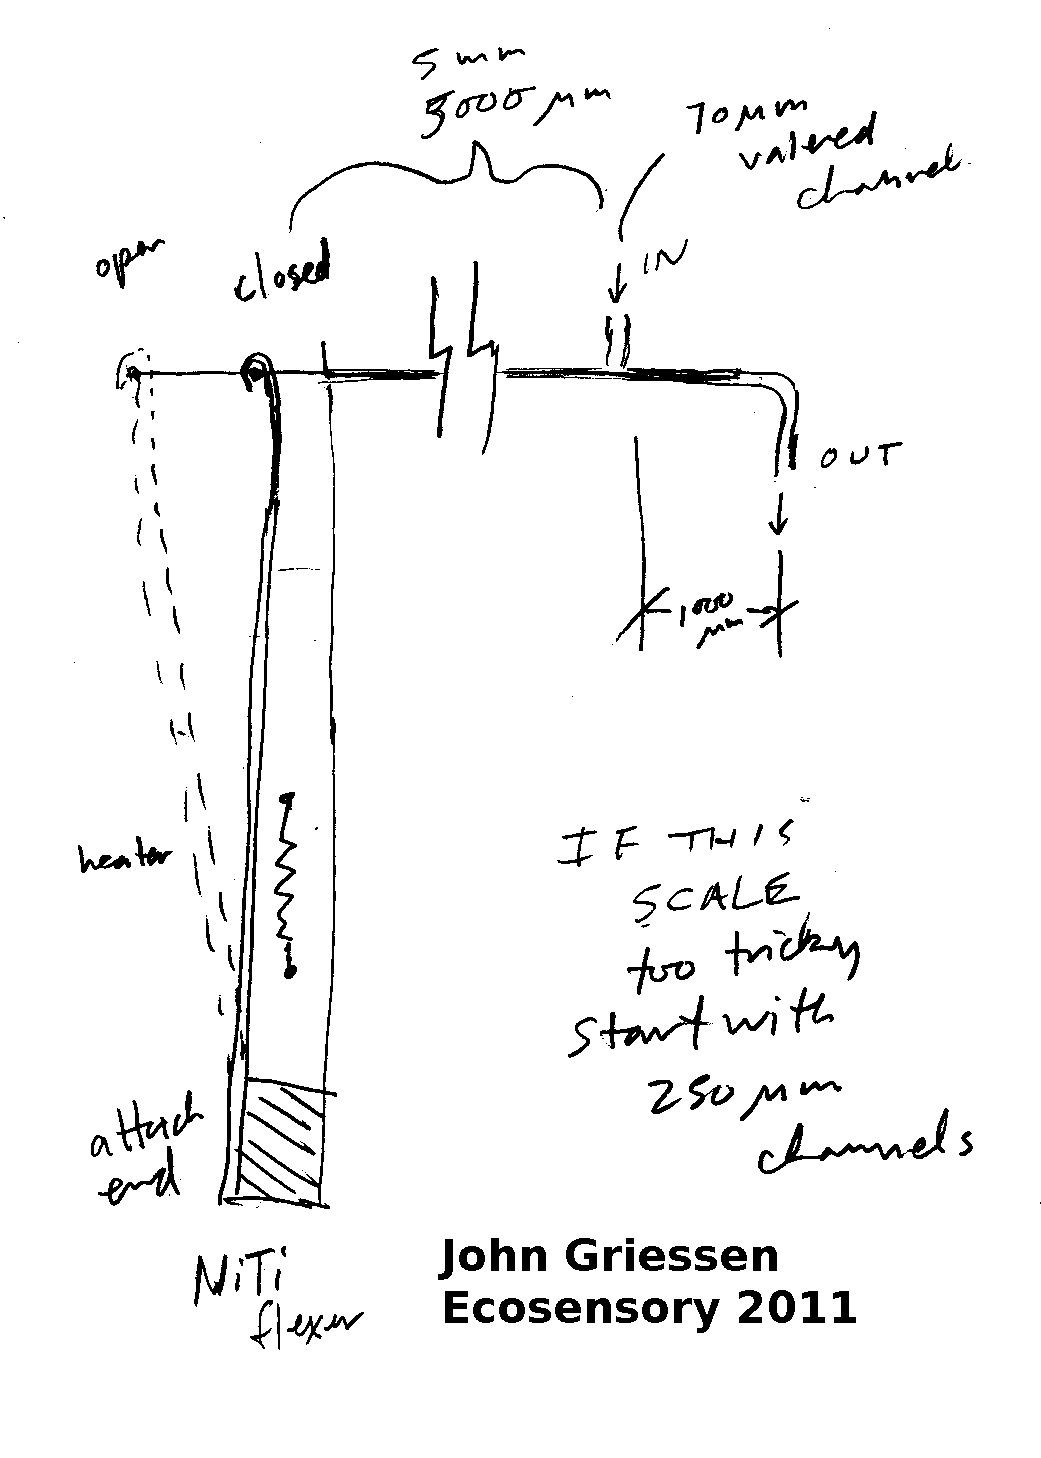 5 mm
5000 µm
70 µm
valved
channel
open
closed
IN
OUT
1000
µm
heater
IF THIS
SCALE
too tricky
start with
250 µm
channels
attach
end
NiTi
flexer
John Griessen
Ecosensory 2011